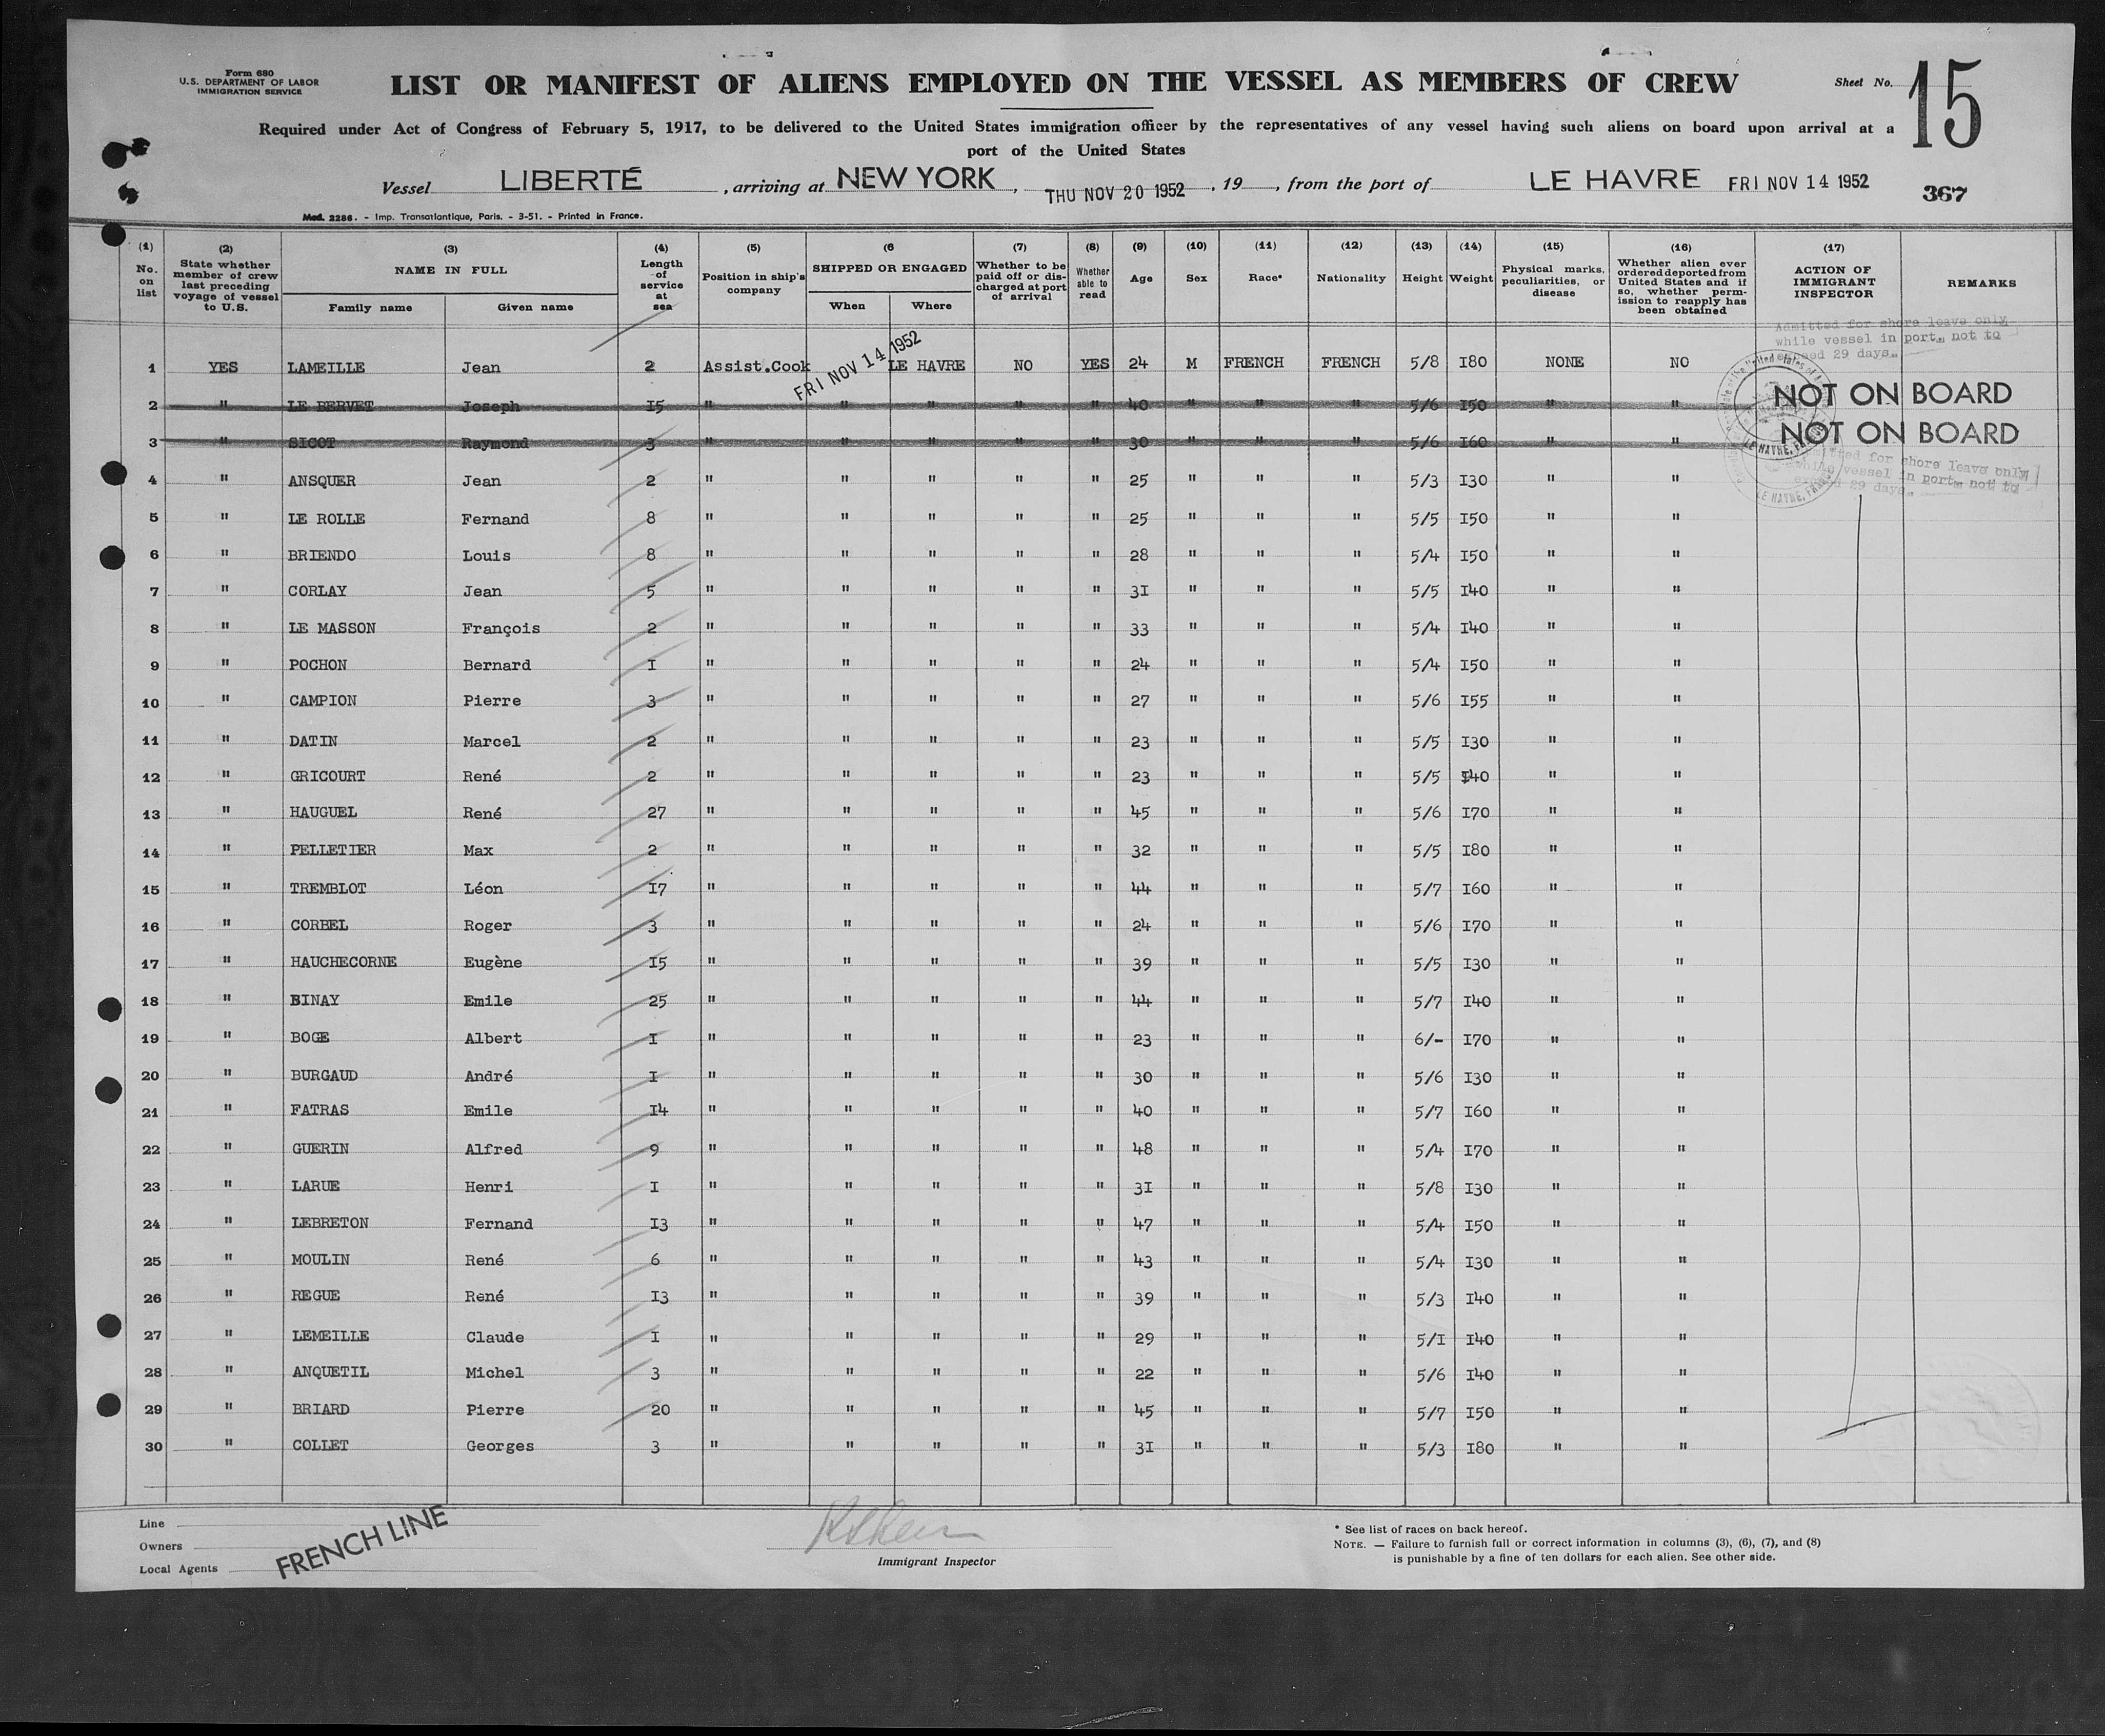 Form 680
U.S. DEPARTMENT OF LABOR
IMMIGRATION SERVICE
LIST OR MANIFEST OF ALIENS EMPLOYED ON THE VESSEL AS MEMBERS OF CREW
Sheet No. 15
Required under Act of Congress of February 5, 1917, to be delivered to the United States immigration officer by the representatives of any vessel having such aliens on board upon arrival at a
port of the United States
Vessel LIBERTÉ , arriving at NEW YORK , THU NOV 20 1952 , 19 , from the port of LE HAVRE FRI NOV 14 1952
367
Mod. 2286. - Imp. Transatlantique, Paris. - 3-51. - Printed in France.
(1) No. on list (2) State whether member of crew last preceding voyage of vessel to U.S. (3) NAME IN FULL Family name Given name (4) Length of service at sea (5) Position in ship's company (6 SHIPPED OR ENGAGED When Where (7) Whether to be paid off or discharged at port of arrival (8) Whether able to read (9) Age (10) Sex (11) Race* (12) Nationality (13) Height (14) Weight (15) Physical marks, peculiarities, or disease (16) Whether alien ever ordered deported from United States and if so, whether permission to reapply has been obtained (17) ACTION OF IMMIGRANT INSPECTOR REMARKS
Admitted for shore leave only
while vessel in port, not to
exceed 29 days.
1 YES LAMEILLE Jean 2 Assist.Cook FRI NOV 14 1952 LE HAVRE NO YES 24 M FRENCH FRENCH 5/8 I80 NONE NO
2 " LE BERVET Joseph I5 " " " " " 40 " " " 5/6 I50 " " NOT ON BOARD
3 " SICOT Raymond 3 " " " " " 30 " " " 5/6 I60 " " NOT ON BOARD
for shore leave only
vessel in port, not to
29 days.
LE HAVRE, FRANCE
4 " ANSQUER Jean 2 " " " " " 25 " " " 5/3 I30 " "
5 " LE ROLLE Fernand 8 " " " " " 25 " " " 5/5 I50 " "
6 " BRIENDO Louis 8 " " " " " 28 " " " 5/4 I50 " "
7 " CORLAY Jean 5 " " " " " 3I " " " 5/5 I40 " "
8 " LE MASSON François 2 " " " " " 33 " " " 5/4 I40 " "
9 " POCHON Bernard I " " " " " 24 " " " 5/4 I50 " "
10 " CAMPION Pierre 3 " " " " " 27 " " " 5/6 I55 " "
11 " DATIN Marcel 2 " " " " " 23 " " " 5/5 I30 " "
12 " GRICOURT René 2 " " " " " 23 " " " 5/5 I40 " "
13 " HAUGUEL René 27 " " " " " 45 " " " 5/6 I70 " "
14 " PELLETIER Max 2 " " " " " 32 " " " 5/5 I80 " "
15 " TREMBLOT Léon I7 " " " " " 44 " " " 5/7 I60 " "
16 " CORBEL Roger 3 " " " " " 24 " " " 5/6 I70 " "
17 " HAUCHECORNE Eugène I5 " " " " " 39 " " " 5/5 I30 " "
18 " BINAY Emile 25 " " " " " 44 " " " 5/7 I40 " "
19 " BOGE Albert I " " " " " 23 " " " 6/- I70 " "
20 " BURGAUD André I " " " " " 30 " " " 5/6 I30 " "
21 " FATRAS Emile I4 " " " " " 40 " " " 5/7 I60 " "
22 " GUERIN Alfred 9 " " " " " 48 " " " 5/4 I70 " "
23 " LARUE Henri I " " " " " 3I " " " 5/8 I30 " "
24 " LEBRETON Fernand I3 " " " " " 47 " " " 5/4 I50 " "
25 " MOULIN René 6 " " " " " 43 " " " 5/4 I30 " "
26 " REGUE René I3 " " " " " 39 " " " 5/3 I40 " "
27 " LEMEILLE Claude I " " " " " 29 " " " 5/I I40 " "
28 " ANQUETIL Michel 3 " " " " " 22 " " " 5/6 I40 " "
29 " BRIARD Pierre 20 " " " " " 45 " " " 5/7 I50 " "
30 " COLLET Georges 3 " " " " " 3I " " " 5/3 I80 " "
Line
Owners
Local Agents
FRENCH LINE
Immigrant Inspector
* See list of races on back hereof.
NOTE. — Failure to furnish full or correct information in columns (3), (6), (7), and (8)
is punishable by a fine of ten dollars for each alien. See other side.